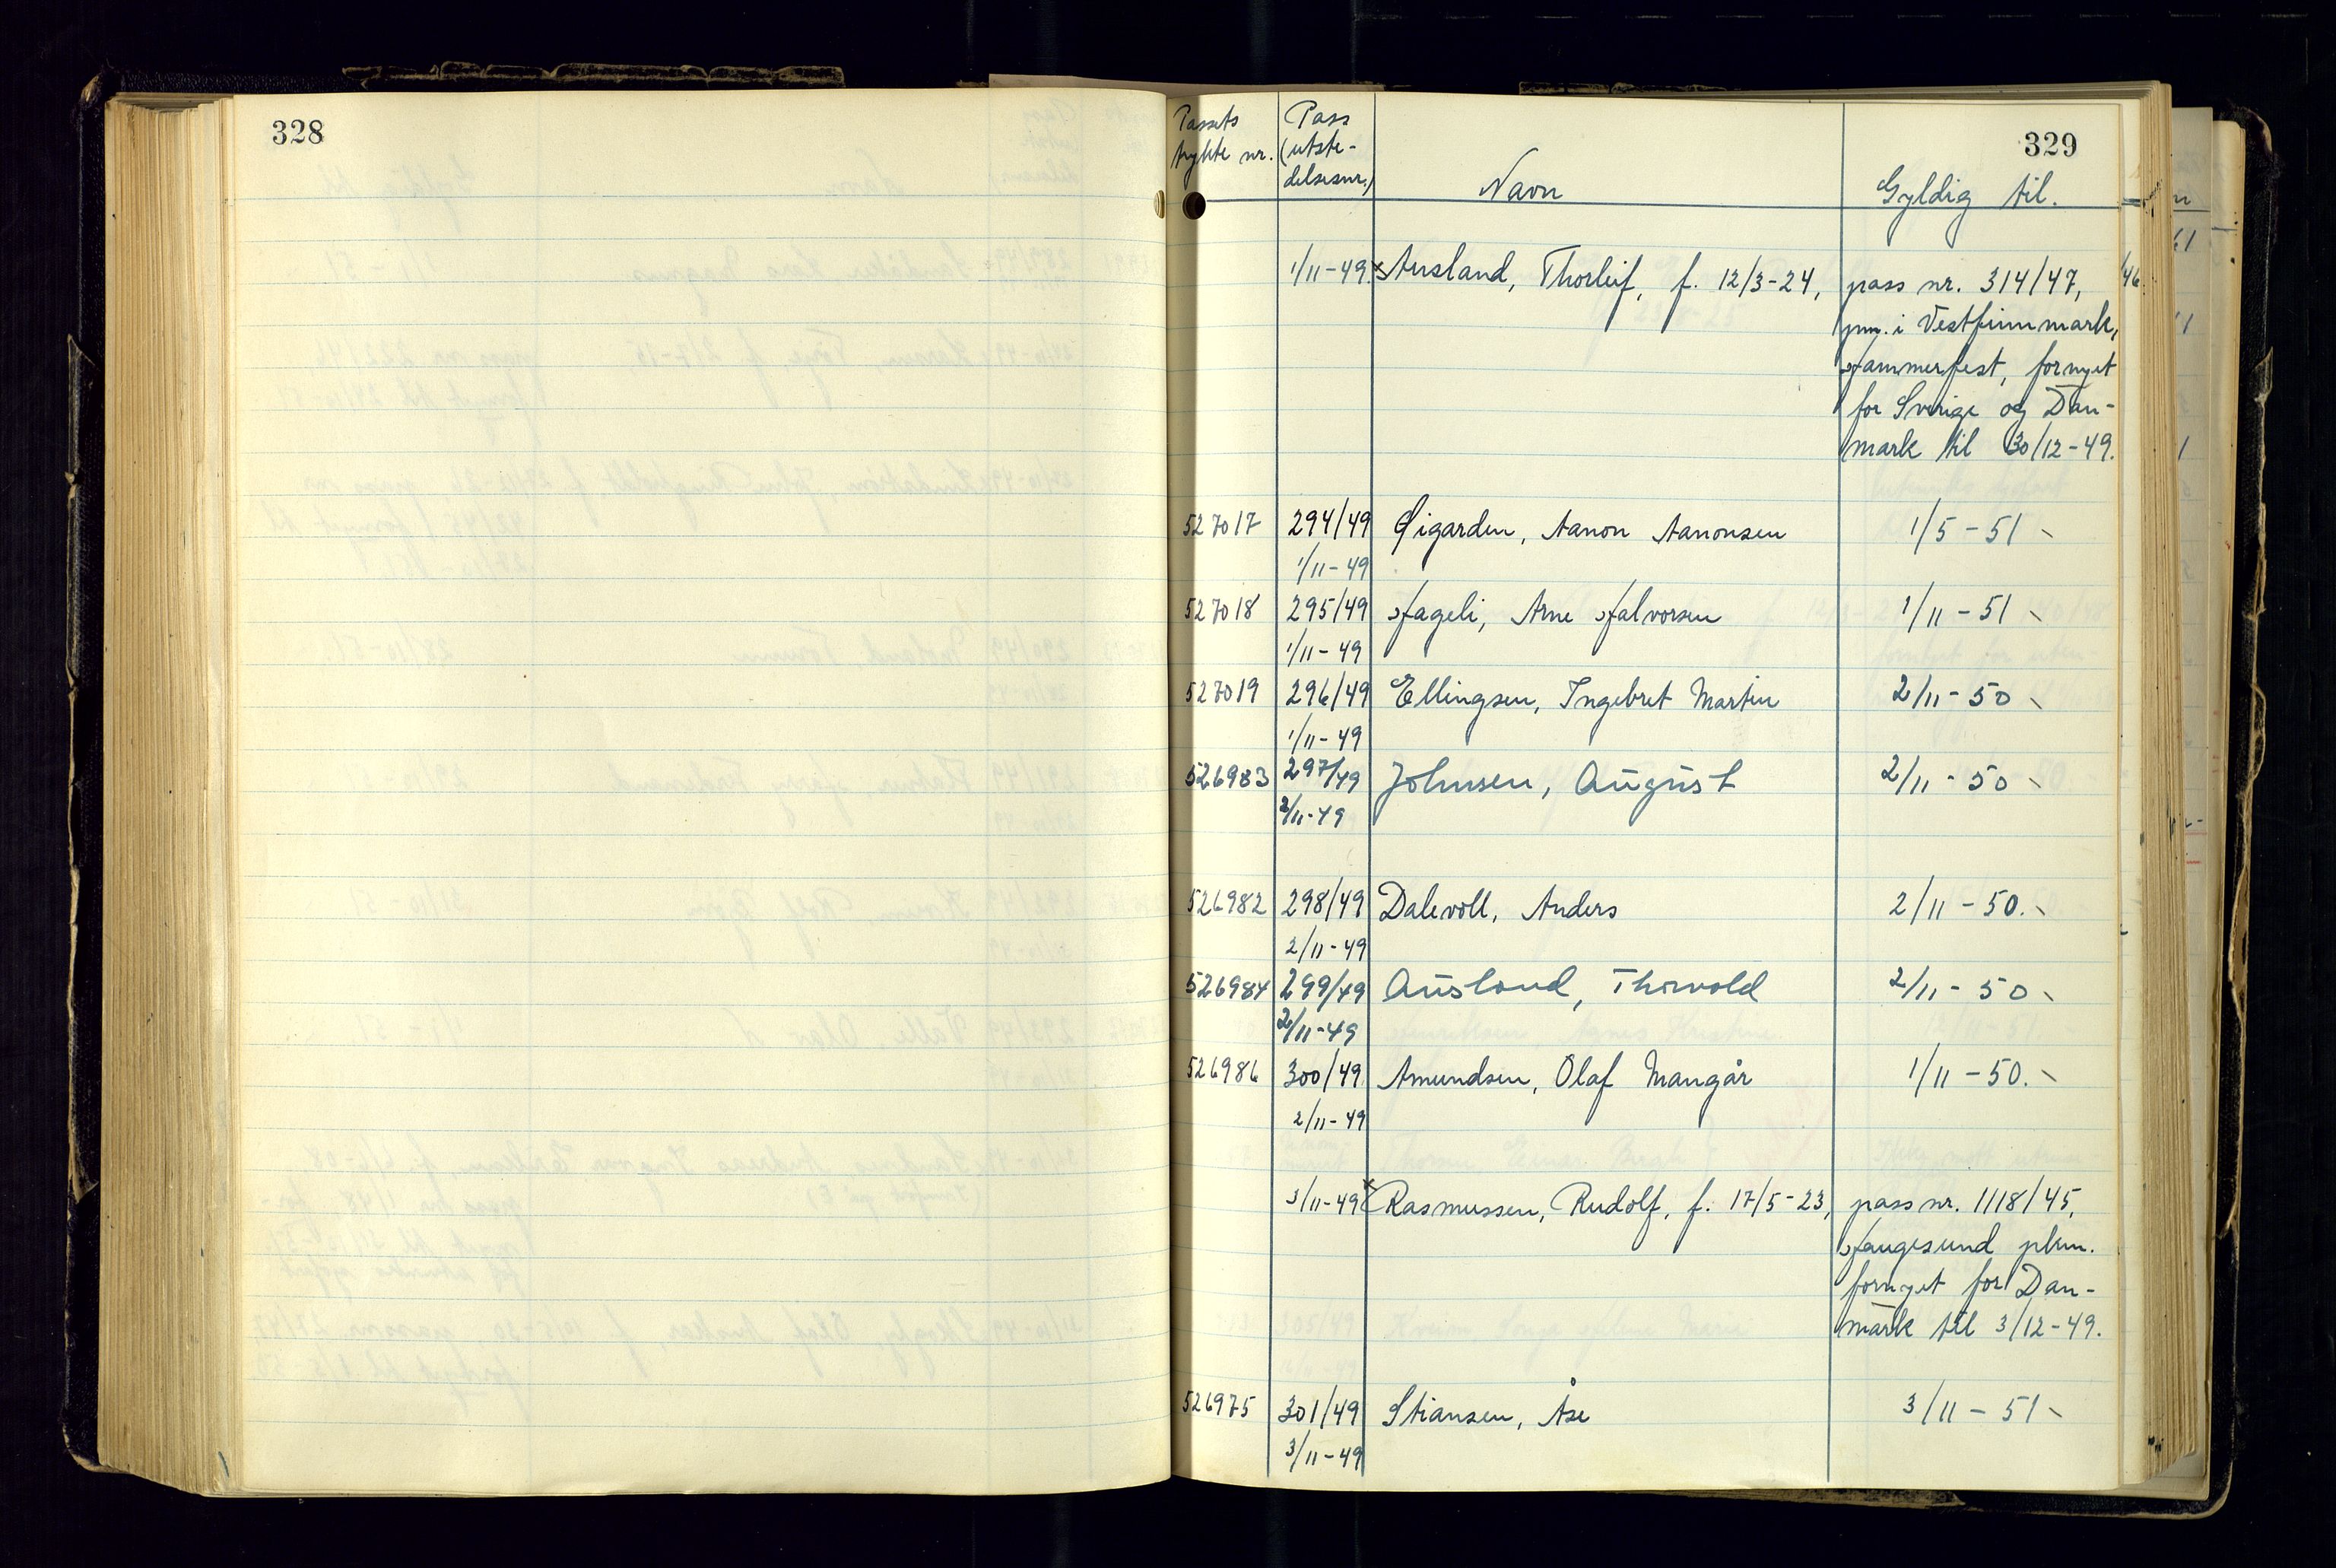 328
329
Passets Pass
trykte nr. (utste-
delsesnr.) Navn Gyldig til.
1/11-49. x Ausland, Thorleif, f. 12/3-24, pass nr. 314/47,
pm. i Vestfinnmark,
Hammerfest, fornyet
for Sverige og Dan-
mark til 30/12-49.
527017 294/49 Øigarden, Aanon Aanonsen 1/5-51
1/11-49
527018 295/49 Hageli, Arne Halvorsen 1/11-51
1/11-49
527019 296/49 Ellingsen, Ingebret Martin 2/11-50
1/11-49
526983 297/49 Johnsen, August 2/11-50
2/11-49
526982 298/49 Dalevoll, Anders 2/11-50.
2/11-49
526984 299/49 Ausland, Thorvald 2/11-50
2/11-49
526986 300/49 Amundsen, Olaf Mangår 1/11-50.
2/11-49
3/11-49 x Rasmussen, Rudolf, f. 17/5-23, pass nr. 1118/45,
Haugesund pkm.
fornyet for Dan-
mark til 3/12-49.
526975 301/49 Stiansen, Åse 3/11-51
3/11-49